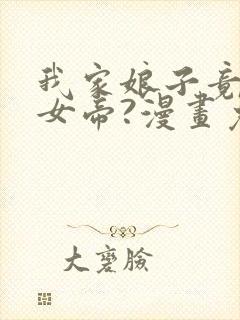 我家娘子竟
女帝?漫畫
大臉